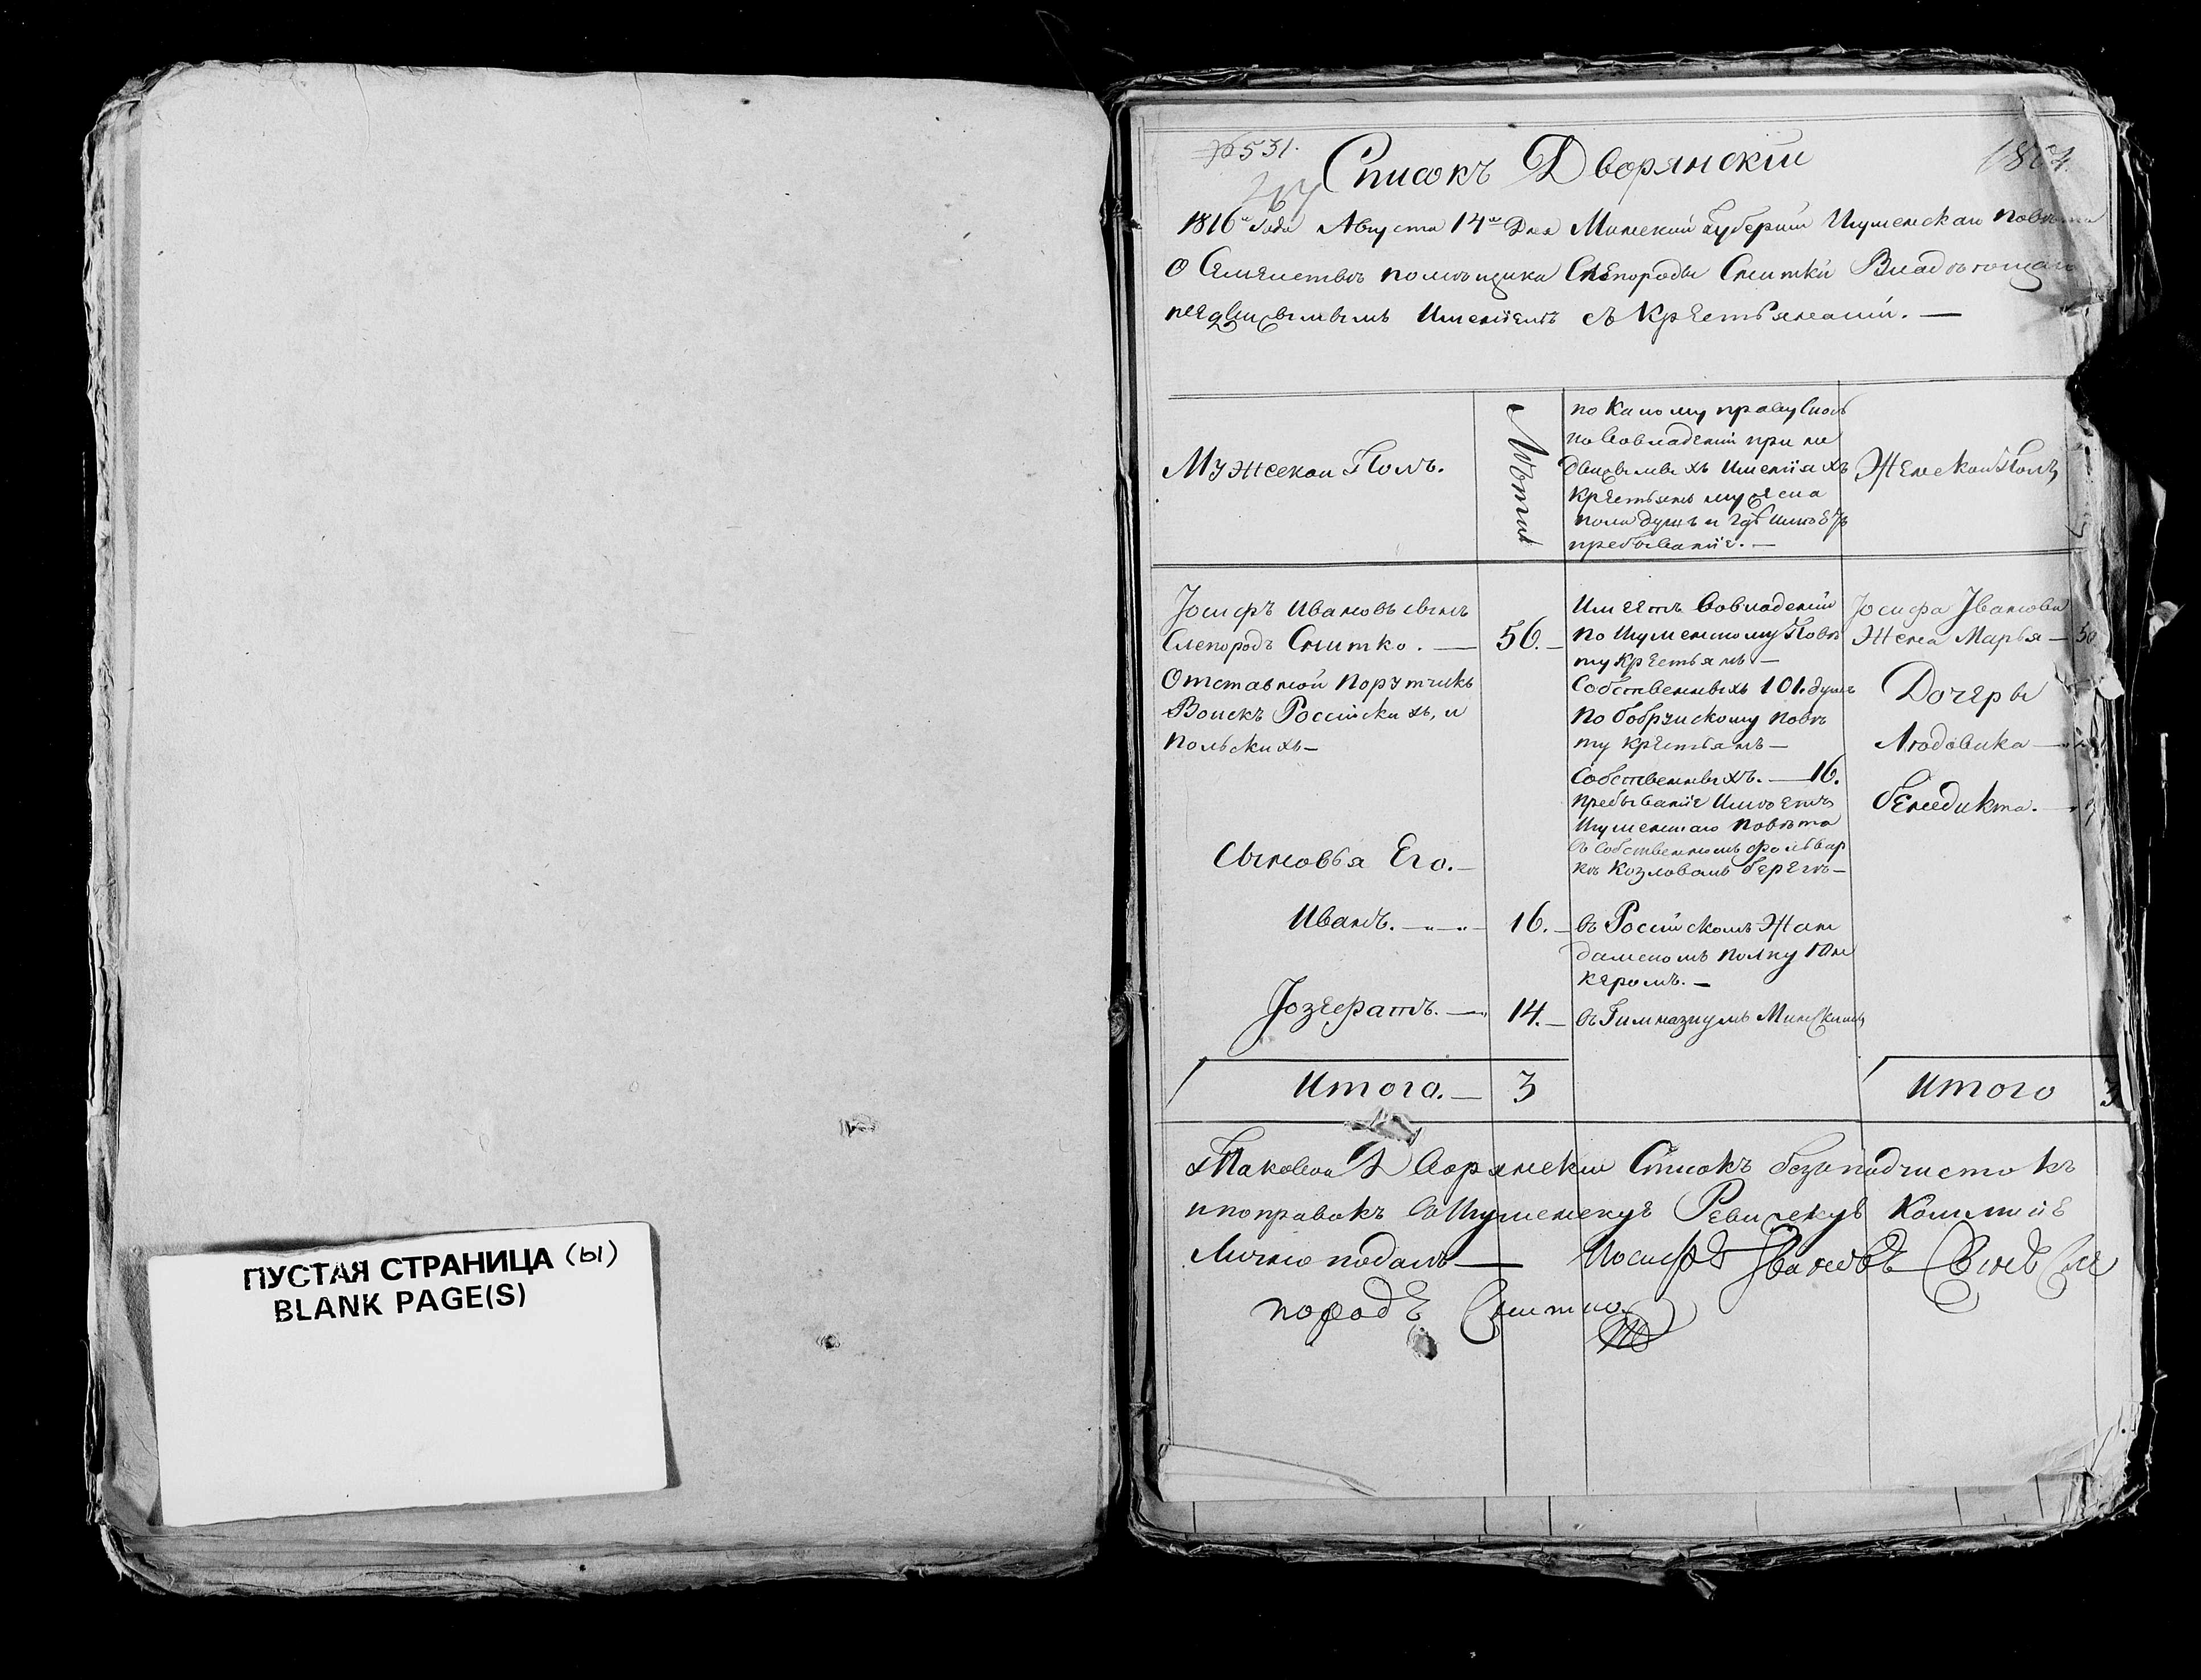 ПУСТАЯ СТРАНИЦА (ы)
BLANK PAGE(S)
№ 531.
Списокъ Дворянскiи
1816го Года Августа 14го Дня Минской Губернiи Игуменскаго повѣта
О Семействѣ помѣщика Слепороды Снитки Владѣющаго
недвижымымъ Именiемъ съ Крестьянами. —
Мужескои Полъ.
Лѣта
по какому праву сколь
ко во владенiи при не
движымыхъ именiяхъ
крестьянъ мужеска
пола душъ и гдѣ имѣетъ
пребыванiе. —
Женскои Полъ
Iосифъ Ивановъ сынъ
Слепородъ Снитко. — 56. —
Отставной Порутчикъ
Воискъ Россiйскихъ, и
Польскихъ —
Имеетъ во владенiи
по Игуменскому Повѣ
ту Крестьянъ —
Собственныхъ 101. душъ
По бобруискому повѣ
ту крестьянъ —
Собственныхъ. — 16.
пребыванiе Имѣетъ
Игуменскаго повѣта
въ собственномъ фольвар
кѣ Козловомъ берегѣ —
Iосифа Iванова
Жена Марья — 50
Дочеры
Людовика —
бенедикта. —
Сыновья Его. —
Иванъ. — 16. — въ Россiйскомъ Жан
дамскомъ полку Юн
керомъ. —
Iозефатъ. — 14. — въ Гимназиумъ Минскимъ
Итого. — 3
Итого 3
Таковои Дворянскiи Списокъ безъ подчистокъ
и поправокъ въ Игуменскую Ревизскую Комисiю
Лично подалъ — Иосифъ Iвановъ Сынъ Сле
породъ Снитко.